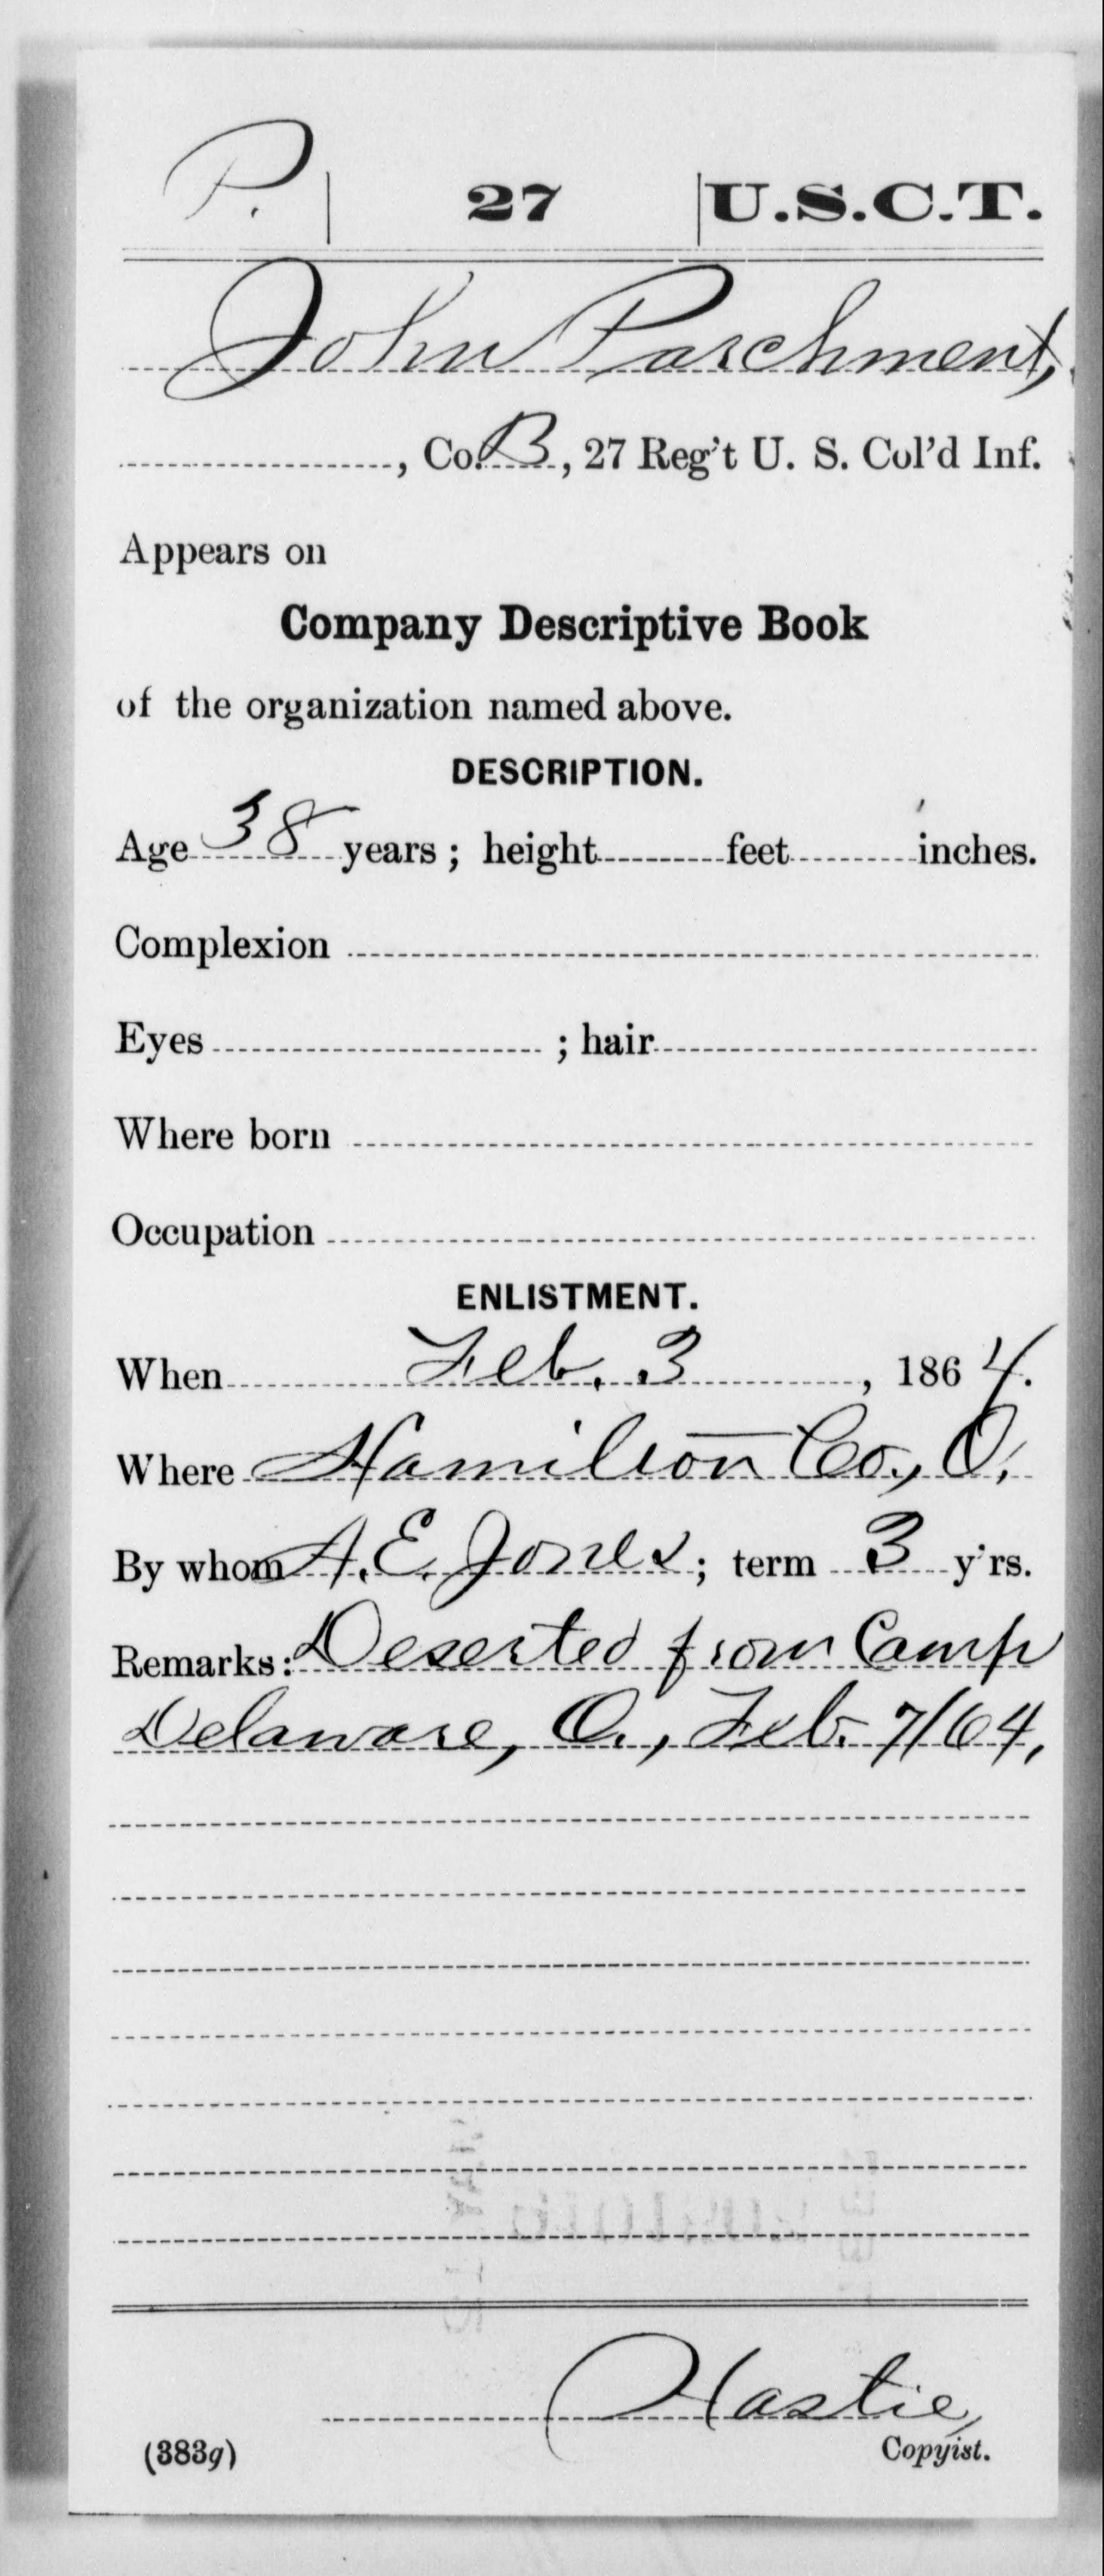 P. | 27 | U.S.C.T.
John Parchment,
, Co. B, 27 Reg't U. S. Col'd Inf.
Appears on
Company Descriptive Book
of the organization named above.
DESCRIPTION.
Age 38 years; height feet inches.
Complexion
Eyes ; hair
Where born
Occupation
ENLISTMENT.
When Feb. 3, 1864.
Where Hamilton Co., O.
By whom A. E. Jones; term 3 y'rs.
Remarks: Deserted from Camp
Delaware, O., Feb. 7/64,
Hastie,
(383g) Copyist.